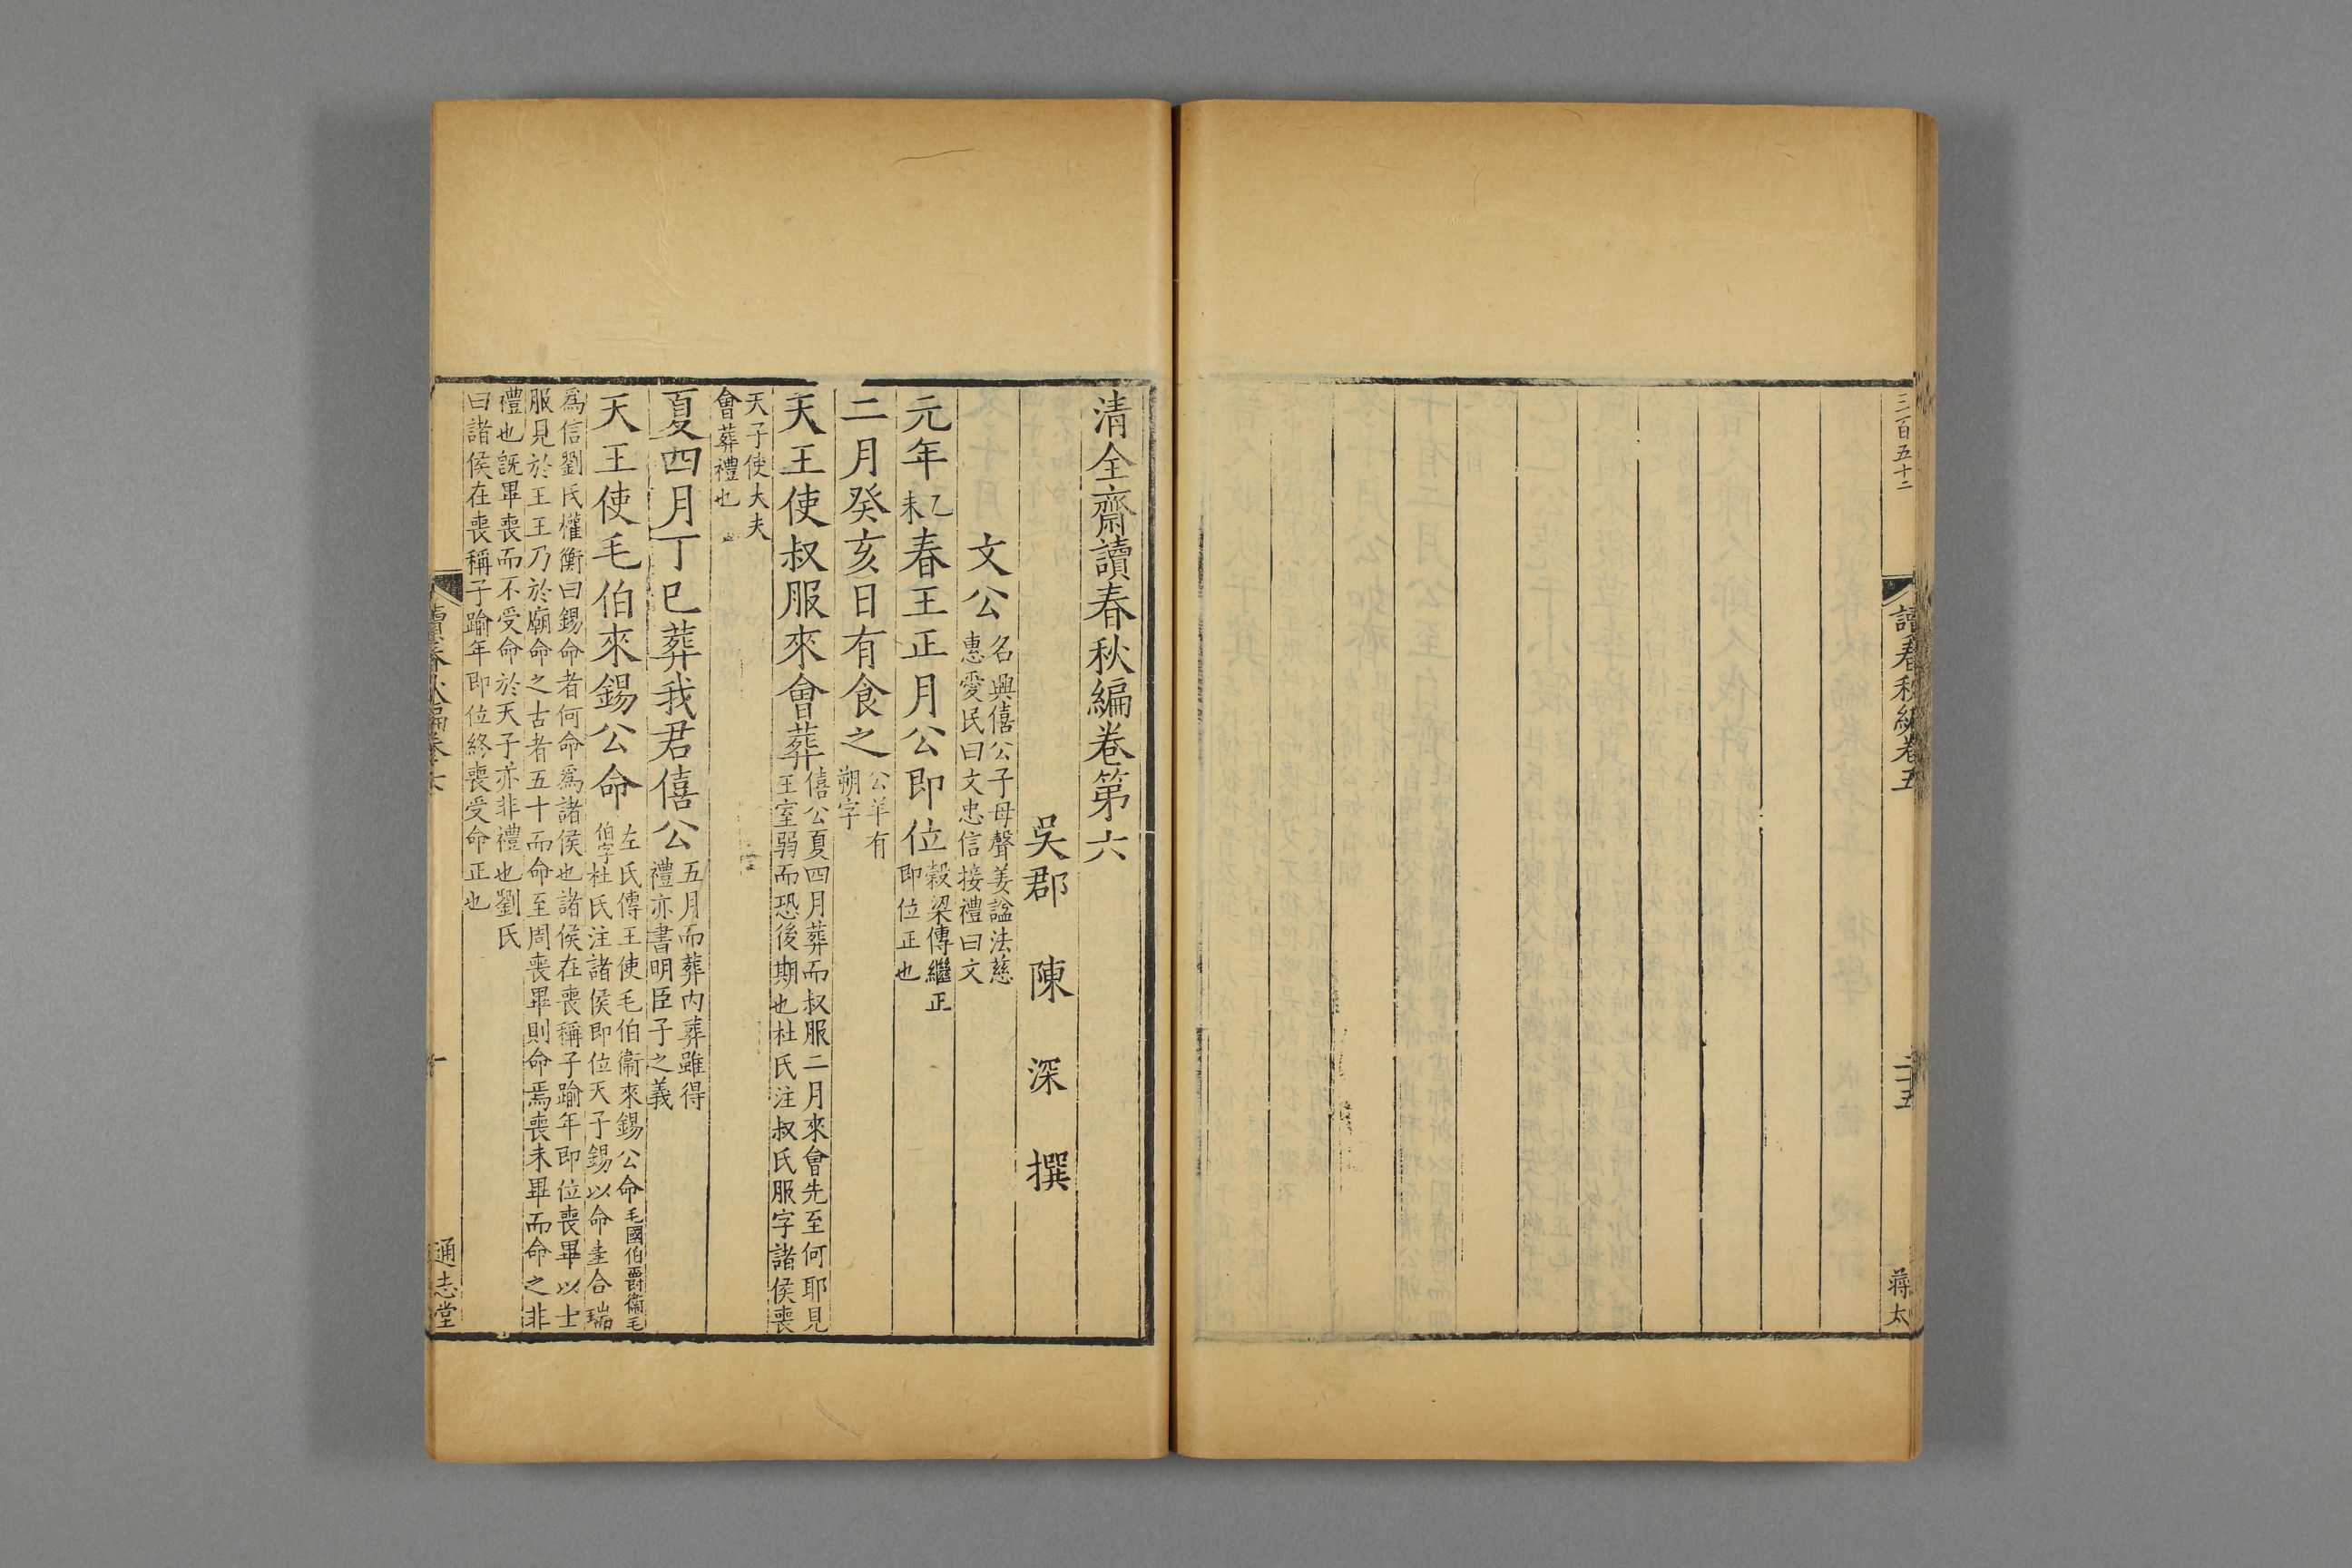 三百五十二
讀春秋編卷五
二十五
蔣太
清全齋讀春秋編卷第六
吳郡 陳 深 撰
文公
名興僖公子母聲姜諡法慈
惠愛民曰文忠信接禮曰文
元年乙未春王正月公即位
穀梁傳繼正
即位正也
二月癸亥日有食之
公羊有
朔字
天王使叔服來會葬
僖公夏四月葬而叔服二月來會先至何耶見
王室弱而恐後期也杜氏注叔氏服字諸侯喪
天子使大夫
會葬禮也
夏四月丁巳葬我君僖公
五月而葬內葬雖得
禮亦書明臣子之義
天王使毛伯來錫公命
左氏傳王使毛伯衞來錫公命毛國伯爵衞毛
伯字杜氏注諸侯即位天子錫以命圭合瑞
為信劉氏權衡曰錫命者何命為諸侯也諸侯在喪稱子踰年即位喪畢以士
服見於王王乃於廟命之古者五十而命至周喪畢則命焉喪未畢而命之非
禮也既畢喪而不受命於天子亦非禮也劉氏
曰諸侯在喪稱子踰年即位終喪受命正也
讀春秋編卷六
一
通志堂